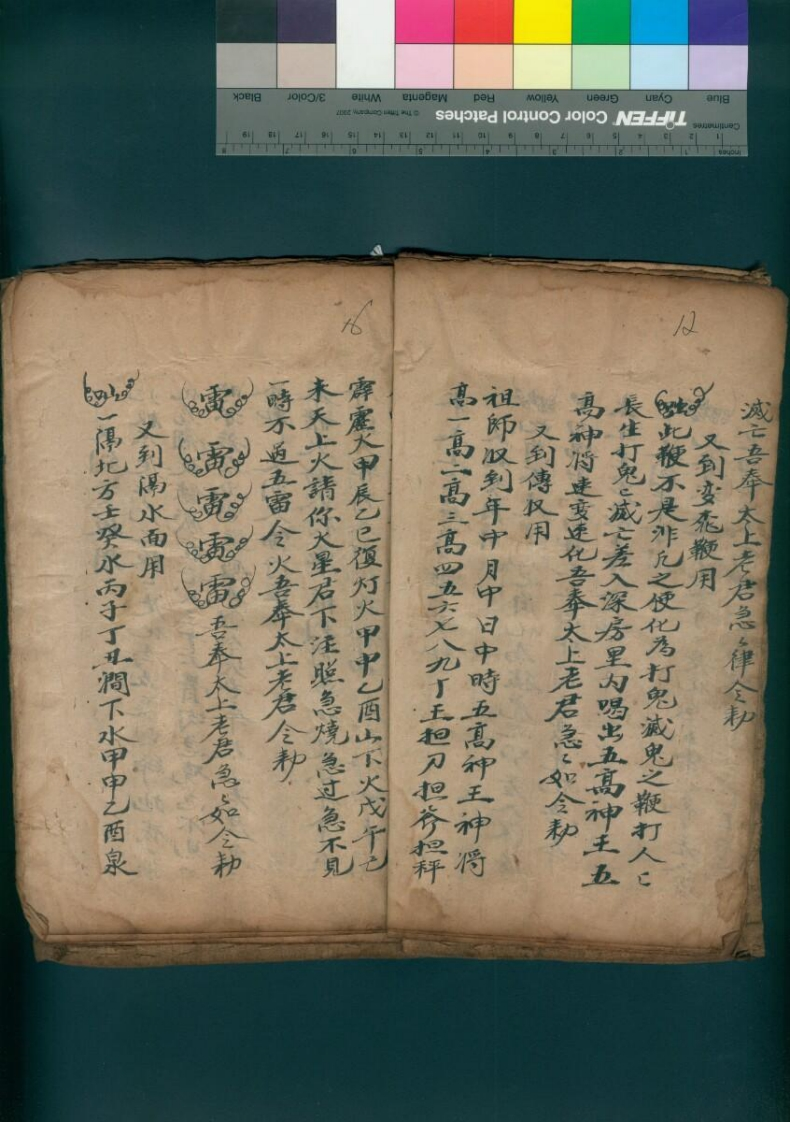 Blue Cyan Green Yellow Red Magenta White 3/Color Black
TIFFEN Color Control Patches © The Tiffen Company, 2007
Centimetres
1 2 3 4 5 6 7 8 9 10 11 12 13 14 15 16 17 18 19
Inches 1 2 3 4 5 6 7 8
12
滅亡吾奉太上老君急〻律令勅
又到变
鞭用
此鞭不是非凡之便化為打鬼滅鬼之鞭打人〻
長生打鬼〻滅亡差入深房里内喝出五高神王五
高神将速变速化吾奉太上老君急〻如令勅
又到傳
用
祖師
到年中月中日中時五高神王神将
高一高二高三高四五六七八九丁王担刀担斧担秤
16
霹靂火甲辰乙巳復灯火甲申乙酉山下火戊午己
未天上火請你火星君下汪照急燒急过急不見
一時不过五雷令火吾奉太上老君令勅
雷雷雷雷雷吾奉太上老君急〻如令勅
又到隔水面用
一隔北方壬癸水丙子丁丑澗下水甲申乙酉泉